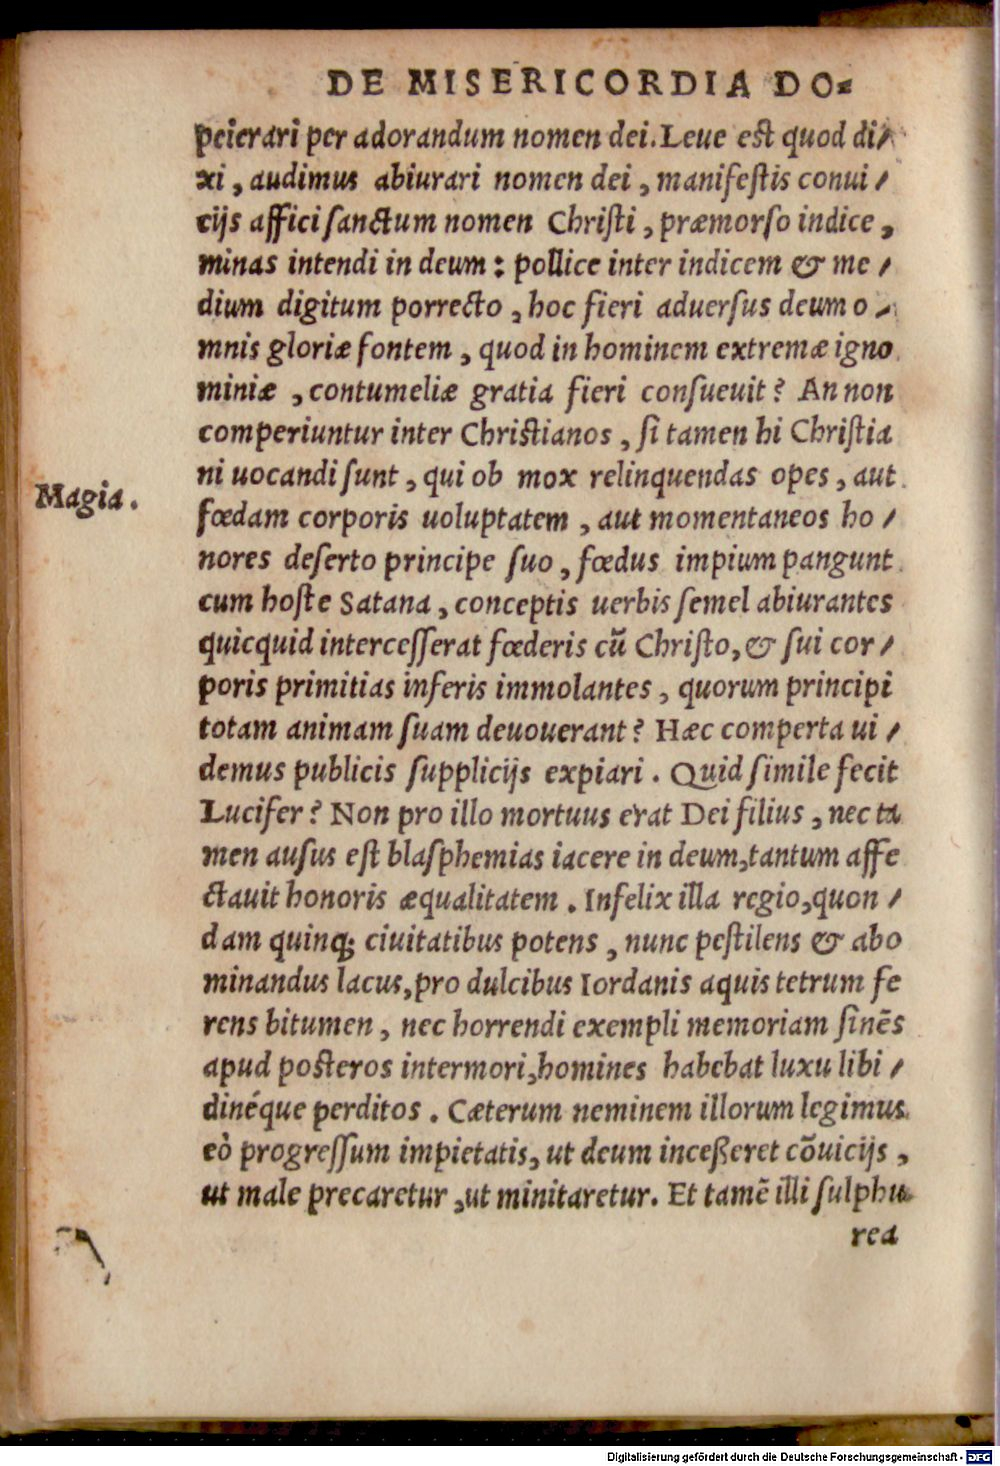 DE MISERICORDIA DO⸗
peierari per adorandum nomen dei. Leue est quod di/
xi, audimus abiurari nomen dei, manifestis conui/
cijs affici sanctum nomen Christi, præmorso indice,
minas intendi in deum: pollice inter indicem & me/
dium digitum porrecto, hoc fieri aduersus deum o/
mnis gloriæ fontem, quod in hominem extremæ igno
miniæ, contumeliæ gratia fieri consueuit? An non
comperiuntur inter Christianos, si tamen hi Christia
ni uocandi sunt, qui ob mox relinquendas opes, aut
Magia.
fœdam corporis uoluptatem, aut momentaneos ho/
nores deserto principe suo, fœdus impium pangunt
cum hoste Satana, conceptis uerbis semel abiurantes
quicquid intercesserat fœderis cũ Christo, & sui cor/
poris primitias inferis immolantes, quorum principi
totam animam suam deuouerant? Hæc comperta ui/
demus publicis supplicijs expiari. Quid simile fecit
Lucifer? Non pro illo mortuus erat Dei filius, nec ta
men ausus est blasphemias iacere in deum, tantum affe
ctauit honoris æqualitatem. Infelix illa regio, quon/
dam quinq; ciuitatibus potens, nunc pestilens & abo
minandus lacus, pro dulcibus Iordanis aquis tetrum fe
rens bitumen, nec horrendi exempli memoriam sinẽs
apud posteros intermori, homines habebat luxu libi/
dinéque perditos. Cæterum neminem illorum legimus
eò progressum impietatis, ut deum incesseret cõuicijs,
ut male precaretur, ut minitaretur. Et tamẽ illi sulphu
rea
Digitalisierung gefördert durch die Deutsche Forschungsgemeinschaft - DFG